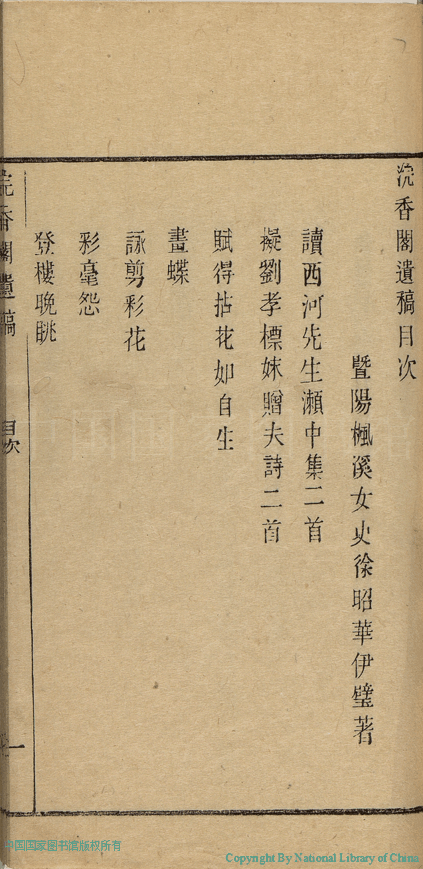 浣香閣遺稿目次
暨陽楓溪女史徐昭華伊璧著
讀西河先生瀨中集二首
擬劉孝標妹贈夫詩二首
賦得拈花如自生
畫蝶
詠剪彩花
彩毫怨
登樓晚眺
浣香閣遺稿
目次
一
中国国家图书馆版权所有
Copyright By National Library of China